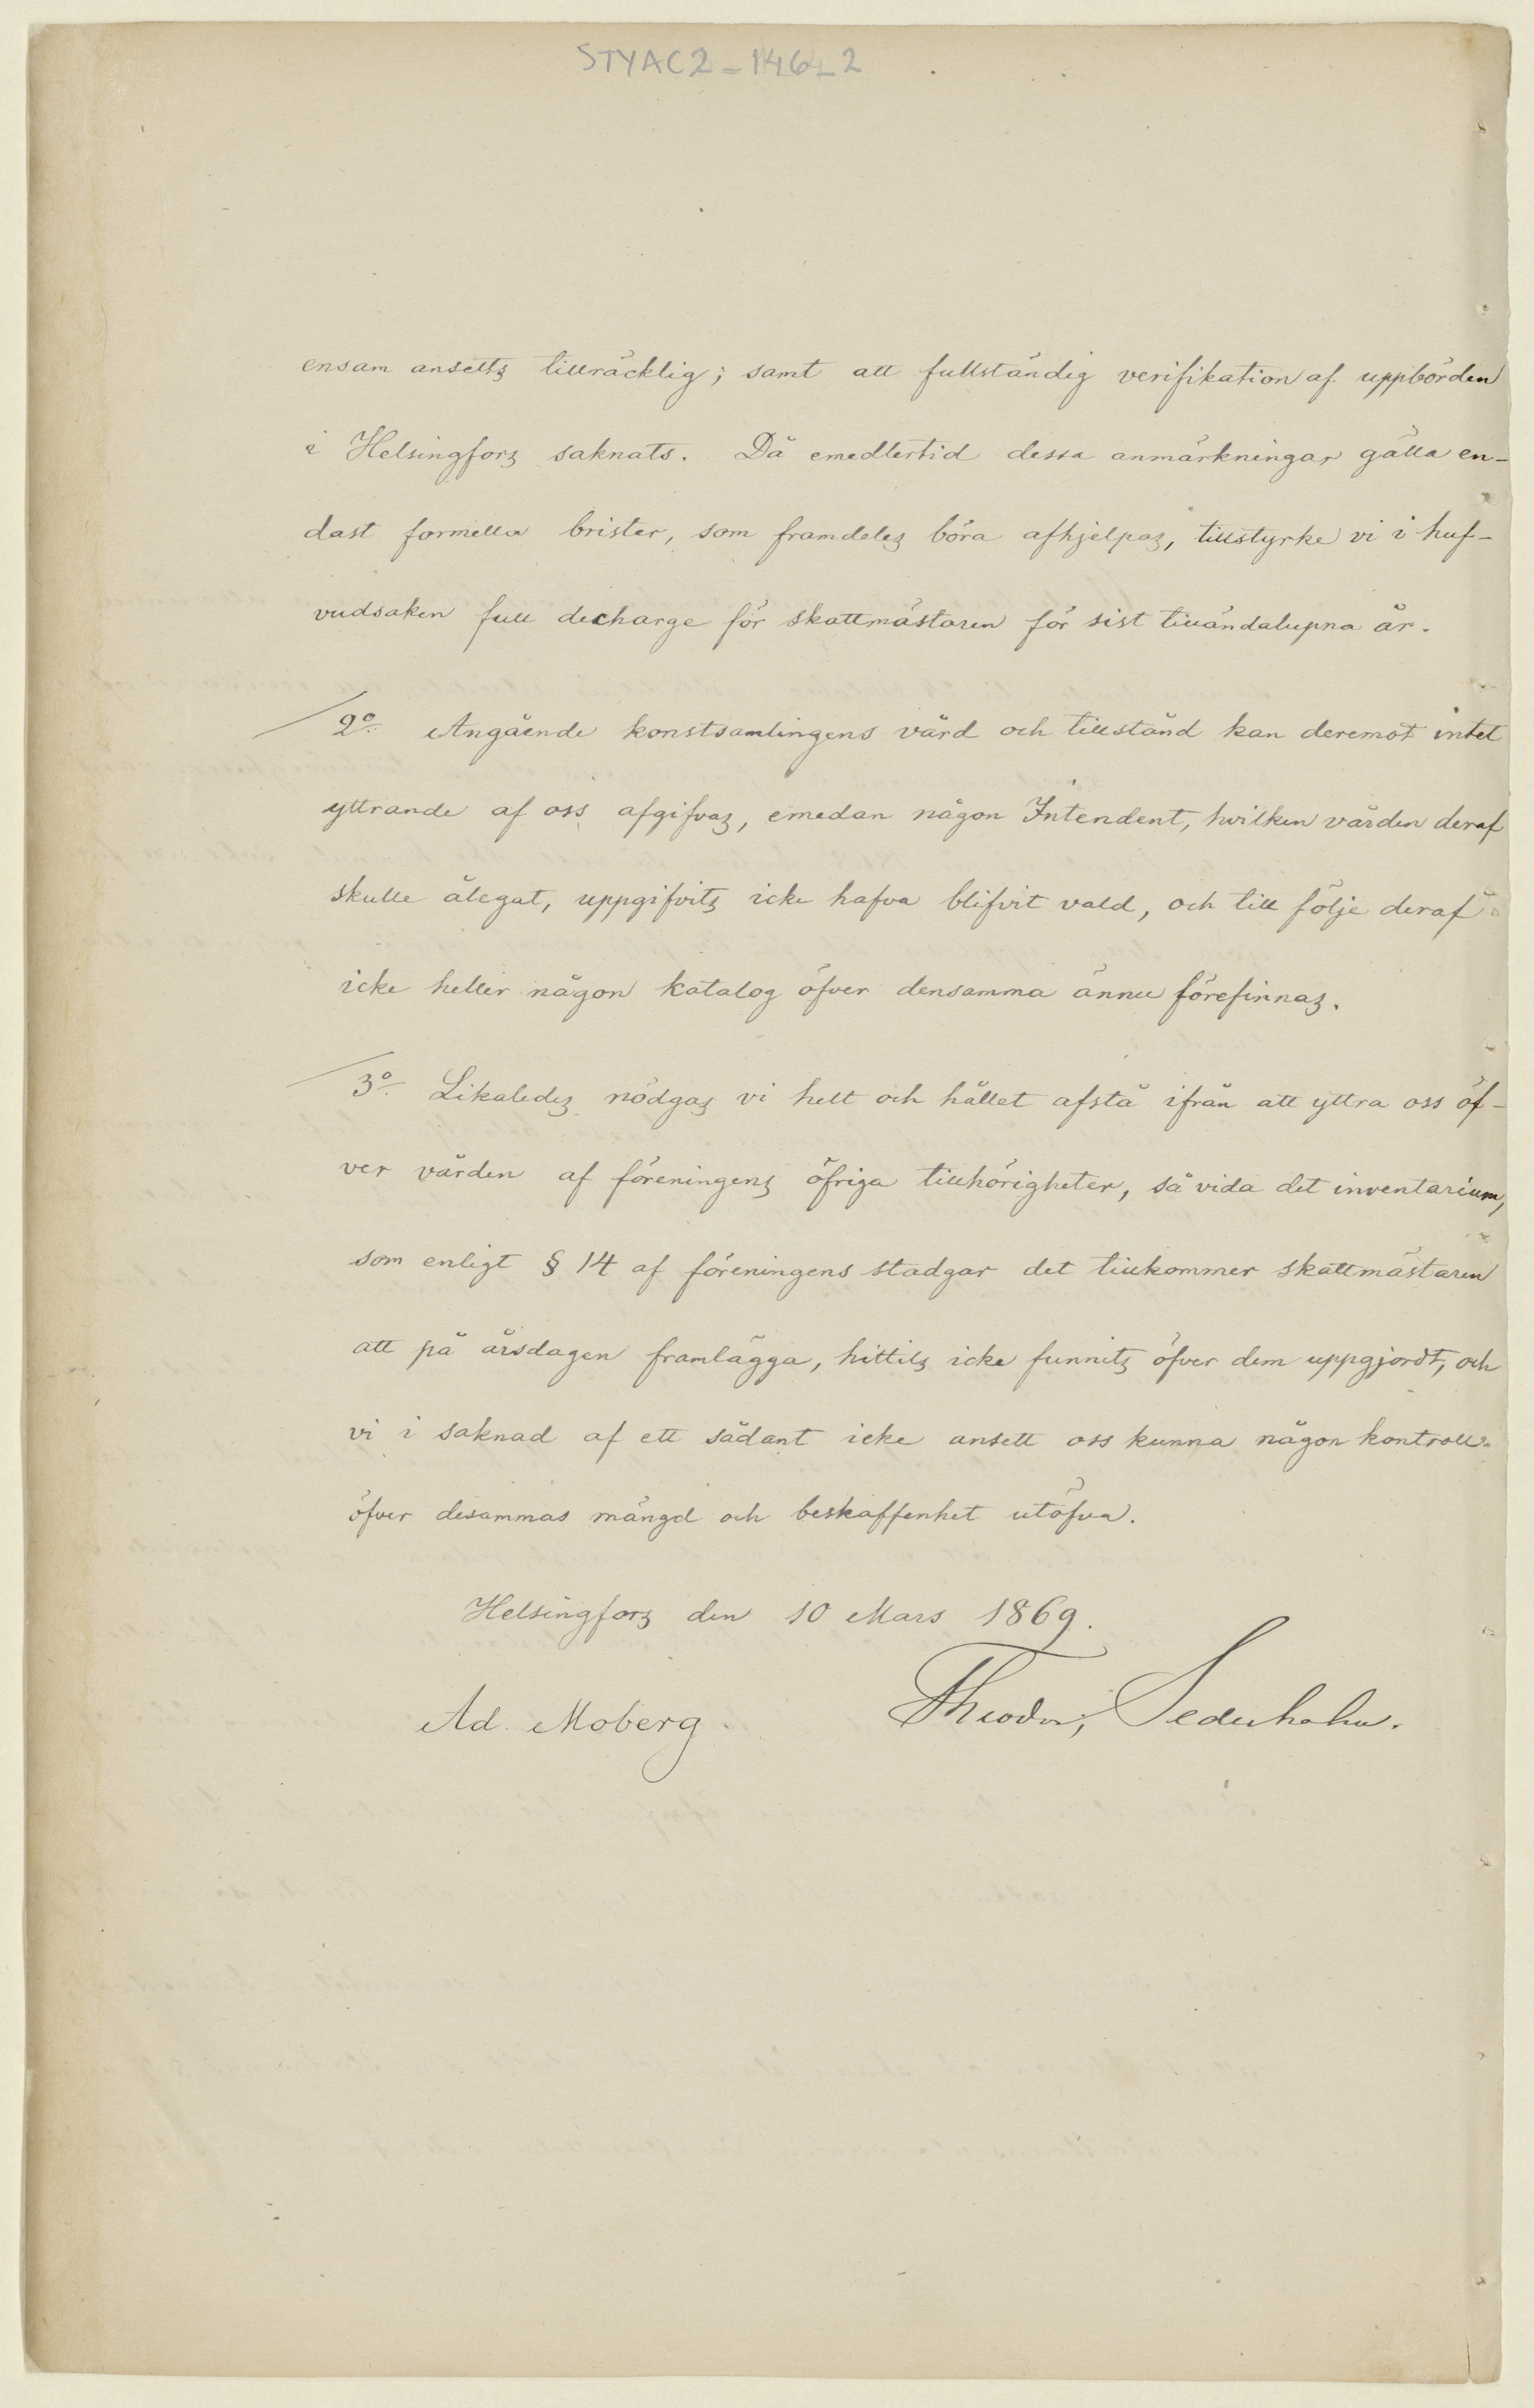 STYAC2-146-2
ensam ansetts tillräcklig; samt att fullständig verifikation af uppbörden
i Helsingfors saknats. Då emedlertid dessa anmärkningar gälla en-
dast formella brister, som framdeles böra afhjelpas, tillstyrke vi i huf-
vudsaken full decharge för skattmästaren för sist tilländalupna år.
2o Angående konstsamlingens vård och tillstånd kan deremot intet
yttrande af oss afgifvas, emedan någon Intendent, hvilken vården deraf
skulle ålegat, uppgifvits icke hafva blifvit vald, och till följe deraf
icke heller någon katalog öfver densamma ännu förefinnas.
3o Likaledes nödgas vi helt och hållet afstå ifrån att yttra oss öf-
ver vården af föreningens öfriga tillhörigheter, så vida det inventarium,
som enligt § 14 af föreningens stadgar det tillkommer skattmästaren
att på årsdagen framlägga, hittils icke funnits öfver dem uppgjordt, och
vi i saknad af ett sådant icke ansett oss kunna någon kontroll
öfver desammas mängd och beskaffenhet utöfva.
Helsingfors den 10 Mars 1869.
Ad. Moberg. Theodor Sederholm.